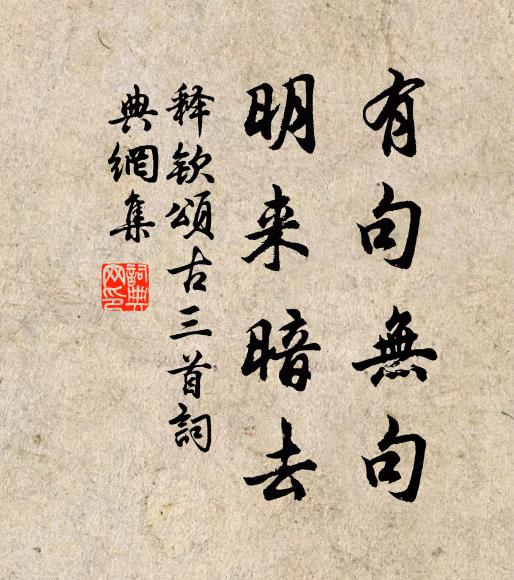 有句無句
明来暗去
释欽頌古三首詞
典網集
詞典网印